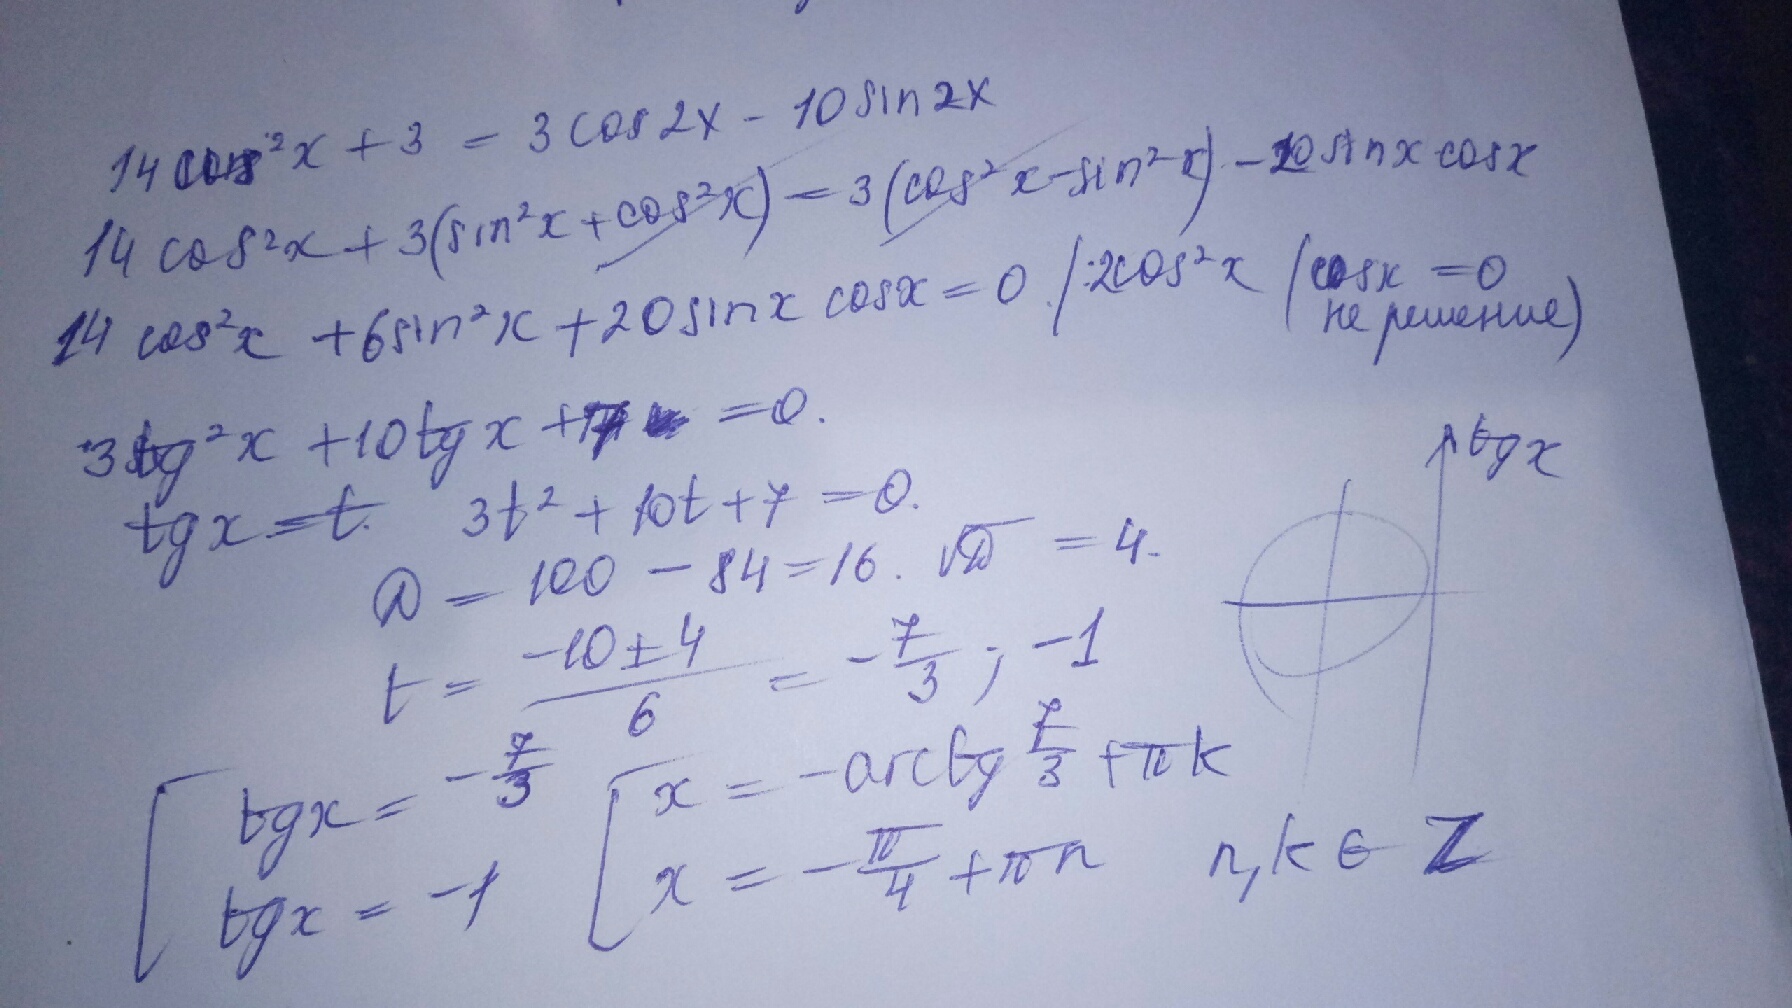 14 cos²x + 3 = 3 cos 2x - 10 sin 2x
14 cos²x + 3(sin²x + cos²x) = 3(cos²x - sin²x) - 20 sin x cos x
14 cos²x + 6 sin²x + 20 sin x cos x = 0 /:2cos²x (cos x = 0
не решение)
3 tg²x + 10 tg x + 7 = 0.
tg x = t. 3t² + 10t + 7 = 0.
D = 100 - 84 = 16. √D = 4.
t = (-10 ± 4)/6 = -7/3 ; -1
tg x
[ tg x = -7/3 [ x = -arctg 7/3 + πk
tg x = -1 x = -π/4 + πn n, k ∈ Z